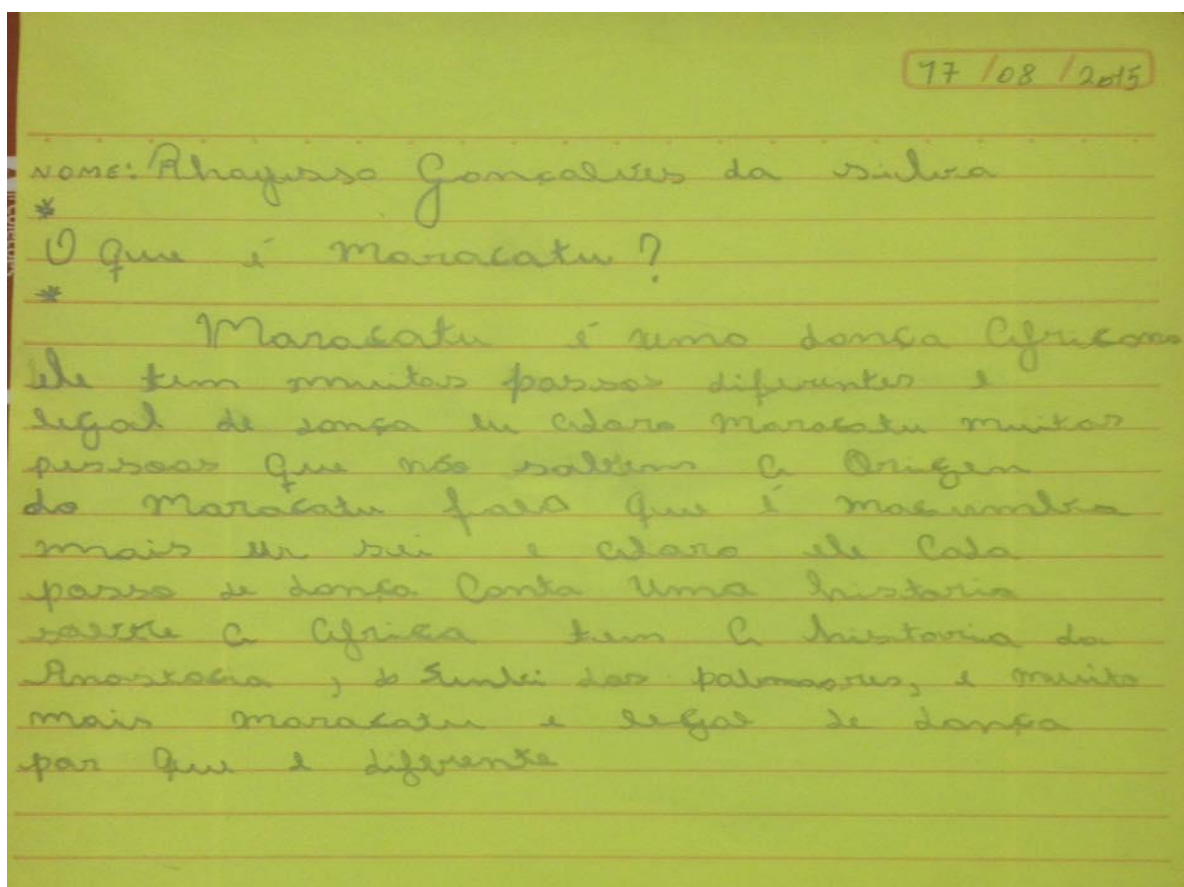 17/08/2015
NOME: Rhayssa Gonçalves da silva
*
O que é Maracatu?
*
Maracatu é uma dança Africana
ele tem muitos passos diferentes e
legal de dança eu adoro Maracatu muitas
pessoas que não sabem a Origem
do Maracatu fala que é macumba
mais eu sei e adoro ele Cada
passo de dança Conta Uma historia
sobre a Africa tem a historia da
Anastacia, do Zumbi dos palmares, e muito
mais maracatu e legal de dança
por que e diferente